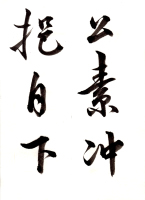 公素冲
挹自下